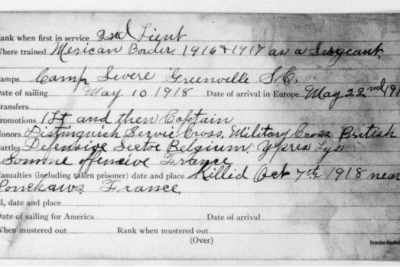 Rank when first in service 2nd Lieut
Where trained Mexican Boder 1916 & 1917 as a Sergeant.
Camps Camp Severe Greenville S.C.
Date of sailing May 10 1918 Date of arrival in Europe May 22nd 191
Transfers
Promotions 1st and then Captain
Honors Distinguish Servic Cross, Military Cross British
Battles Defensive Sector Belgium, Ypres Lys
Somme offensive France
Casualties (including taken prisoner) date and place Killed Oct 7th 1918 near
France
date and place
Date of sailing for America Date of arrival in America
When mustered out Rank when mustered out
(Over)